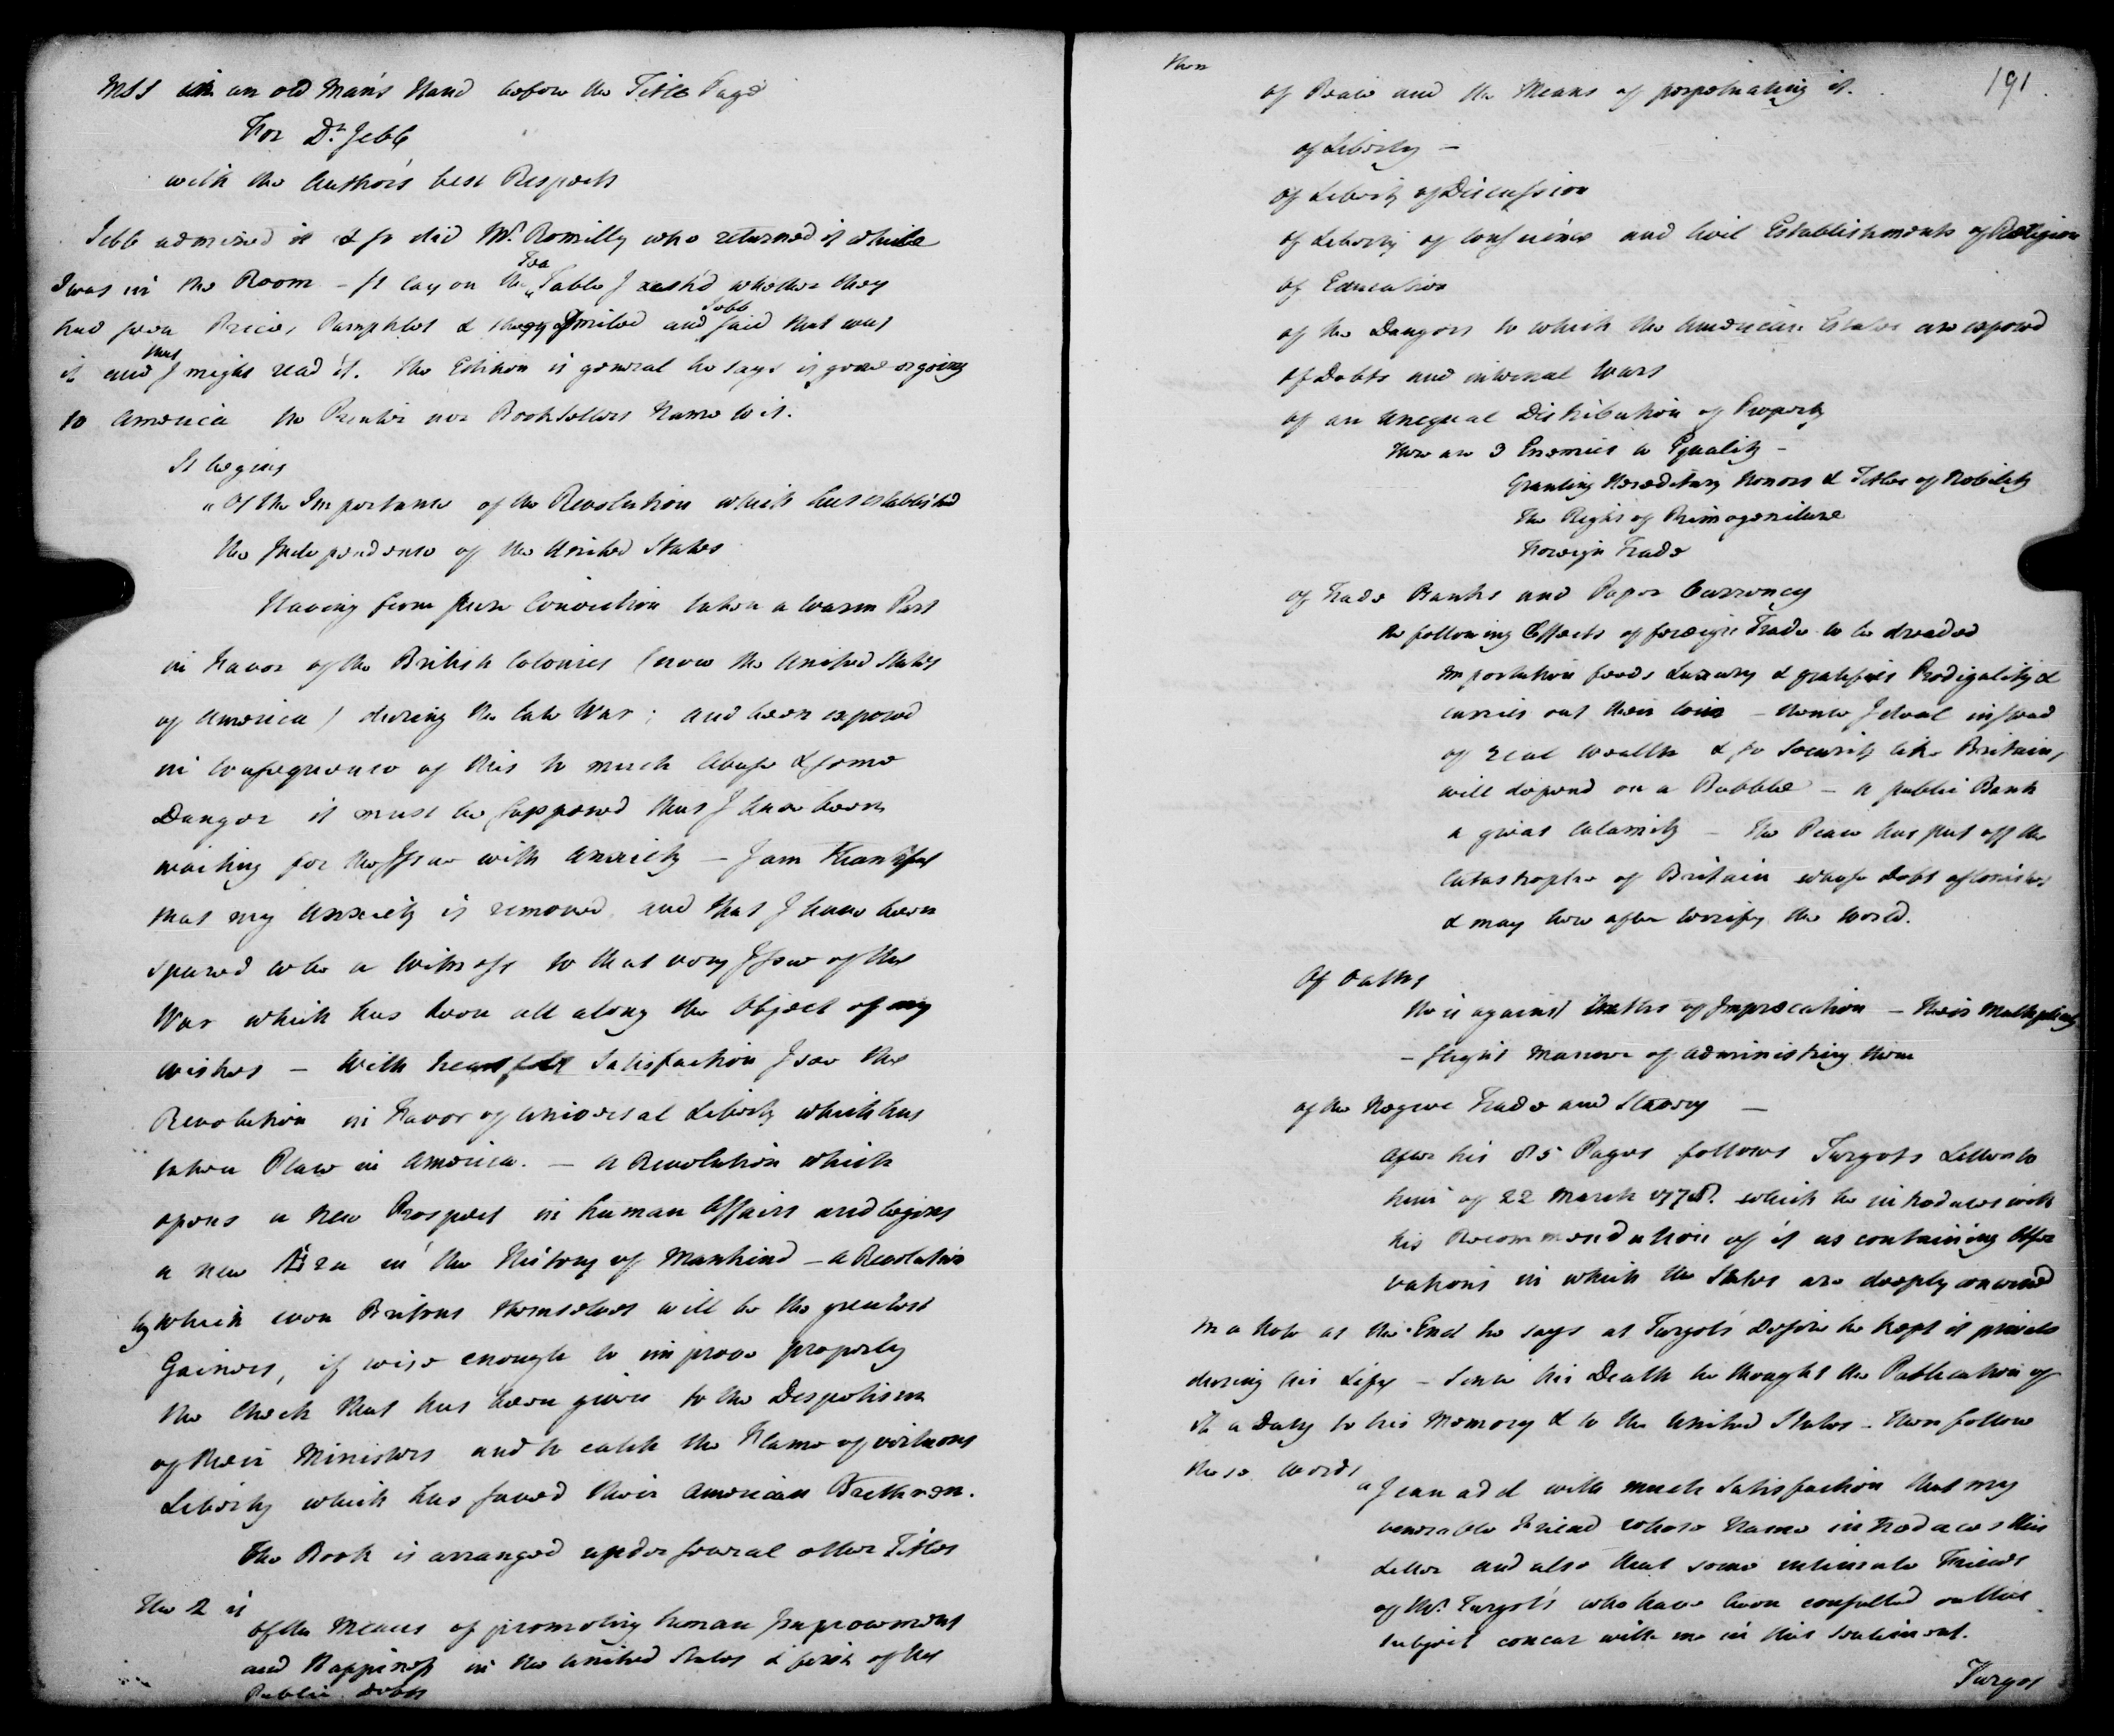 MSS in an old Man's Hand before the Title Page
For Dr. Jebb
with the Author's best Respects
Jebb admired it & so did Mr. Romilly who returned it while
I was in the Room - It lay on the Tea Table I ask'd whether they
had seen Price's Pamphlet & they smiled and Jebb said that was
it and that I might read it. The Edition in general he says is gone or going
to America no Printer nor Booksellers Name to it.
It begins
"Of the Importance of the Revolution which has established
the Independence of the United States
Having from pure Conviction taken a warm Part
in Favor of the British Colonies (now the United States
of America) during the late War; and been exposed
in Consequence of this to much Abuse & some
Danger it must be supposed that I have been
waiting for the Issue with Anxiety - I am thankful
that my Anxiety is removed and that I have been
spared to be a Witness to that very Issue of the
War which has been all along the Object of my
wishes - With heartfelt Satisfaction I see the
Revolution in Favor of universal Liberty which has
taken Place in America. - a Revolution which
opens a new Prospect in human Affairs and begins
a new Æra in the History of Mankind - a Revolution
by which even Britons themselves will be the greatest
Gainers, if wise enough to improve properly
the Check that has been given to the Despotism
of their Ministers and to catch the Flame of virtuous
Liberty which has saved their American Brethren.
The Book is arranged under several other Titles
The 2 is
Of the Means of promoting human Improvement
and Happiness in the United States & first of the
Public Debts
then
191.
of Peace and the Means of perpetuating it.
of Liberty -
of Liberty of Discussion
of Liberty of Conscience and Civil Establishments of Religion
of Education
of the Dangers to which the American States are exposed
of Debts and internal Wars
of an unequal Distribution of Property
There are 3 Enemies to Equality -
Granting Hereditary Honors & Titles of Nobility
The Right of Primogeniture
Foreign Trade
of Trade Banks and Paper Currency
The following Effects of foreign Trade to be dreaded
Importation feeds Luxury & gratifies Prodigality &
carries out their Coin - hence Ideal instead
of real Wealth & so Security like Britains
will depend on a Bubble - a public Bank
a great Calamity - The Peace has put off the
Catastrophe of Britain whose Debt astonishes
& may hereafter terrify the World.
Of Oaths
He is against Oaths of Imprecation - their Multiplicity
- slight Manner of administring them
of the Negroe Trade and Slavery -
After his 85 Pages follows Turgots Letter to
him of 22 March 1778. which he introduces with
his Recommendation of it as containing Obser
vations in which the States are deeply concerned
In a Note at the End he says at Turgot's Desire he kept it private
during his Life - Since his Death he thought the Publication of
it a Duty to his Memory & to the United States - then follow
these words
"I can add with much Satisfaction that my
venerable Friend whose Name introduces this
Letter and also that some intimate Friends
of Mr. Turgot's who have been consulted on this
subject concur with me in this Sentiment.
Turgot